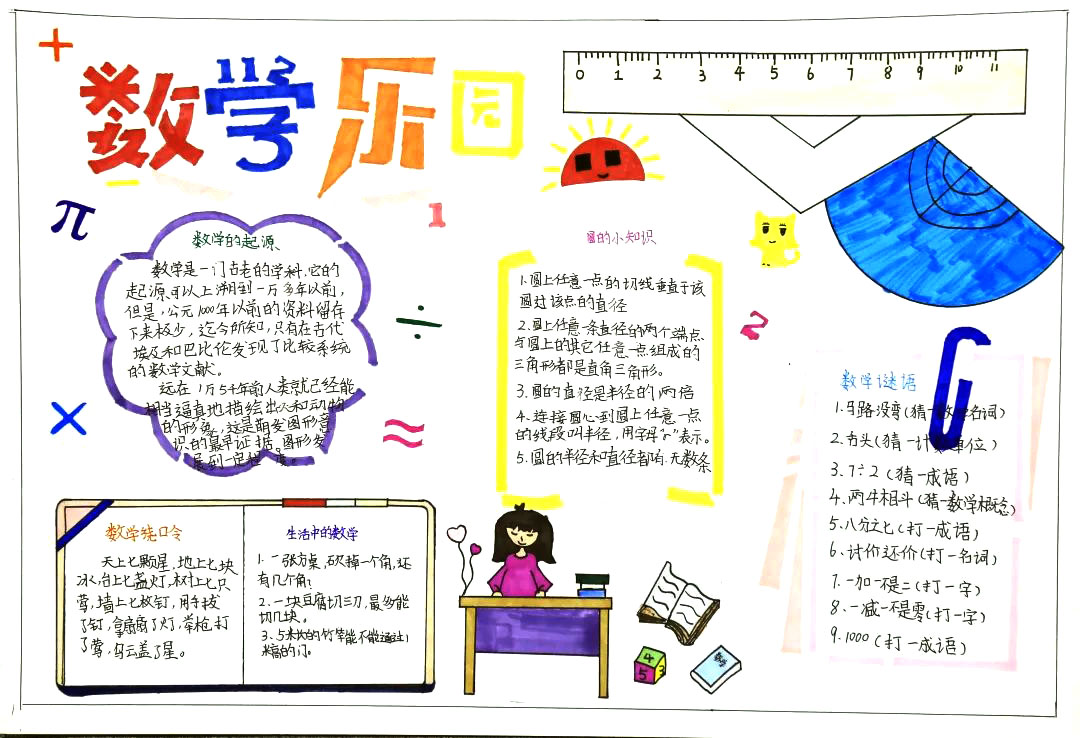 +
数学乐园
0 1 2 3 4 5 6 7 8 9 10 11
π
1
数学的起源
数学是一门古老的学科,它的
起源可以上溯到一万多年以前,
但是,公元1000年以前的资料留存
下来极少,迄今所知,只有在古代
埃及和巴比伦发现了比较系统
的数学文献。
远在1万5千年前人类就已经能
相当逼真地描绘出人和动物
的形象,这是萌发图形意
识的最早证据。图形发
展到一定程度。
÷
×
≈
圆的小知识
1.圆上任意一点的切线垂直于该
圆过该点的直径
2.圆上任意一条直径的两个端点
与圆上的其它任意一点组成的
三角形都是直角三角形。
3.圆的直径是半径的两倍
4.连接圆心到圆上任意一点
的线段叫半径,用字母“r”表示。
5.圆的半径和直径都有无数条
2
数学谜语
1.马路没弯(猜一数学名词)
2.(猜一计数单位)
3.7÷2(猜一成语)
4.两牛相斗(猜一数学概念)
5.八分之七(打一成语)
6.讨价还价(打一名词)
7.一加一不是二(打一字)
8.一减一不是零(打一字)
9.1000(打一成语)
数学绕口令
天上七颗星,地上七块
冰,台上七盏灯,树上七只
莺,墙上七枚钉,用手拔
了钉,拿扇扇了灯,举枪打
了莺,乌云盖了星。
生活中的数学
1.一张方桌,砍掉一个角,还
有几个角?
2.一块豆腐切三刀,最多能
切几块。
3.5米长的竹竿能不能通过1
米高的门。
4
5 3
数学